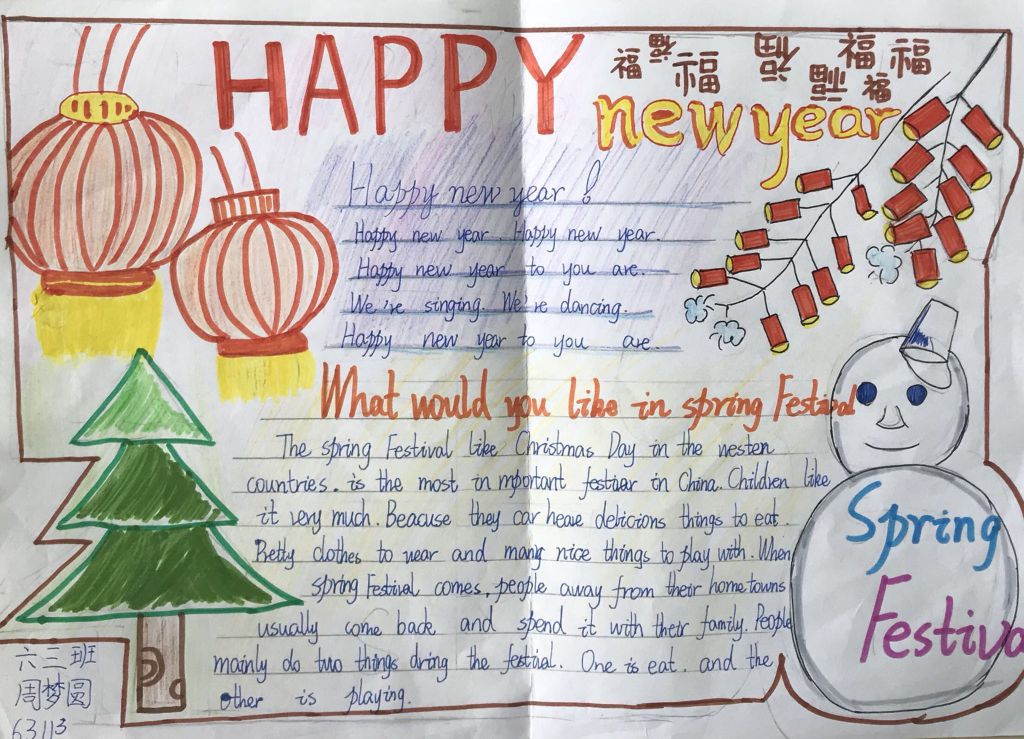 HAPPY
福 福 福 福 福 福 福 福
new year
Happy new year !
Happy new year. Happy new year.
Happy new year to you are.
We're singing. We're dancing.
Happy new year to you are.
What would you like in spring Festival
The spring Festival like Christmas Day in the nesten
countries. is the most in mportant festivar in China. Children like
it very much. Beacuse they car heave delicions things to eat.
Pretty clothes to wear and many nice things to play with. When
spring Festival comes, people away from their hometowns
usually come back and spend it with their family. People
mainly do two things dring the festival. One is eat. and the
other is playing.
Spring
Festiva
六三班
周梦圆
63113